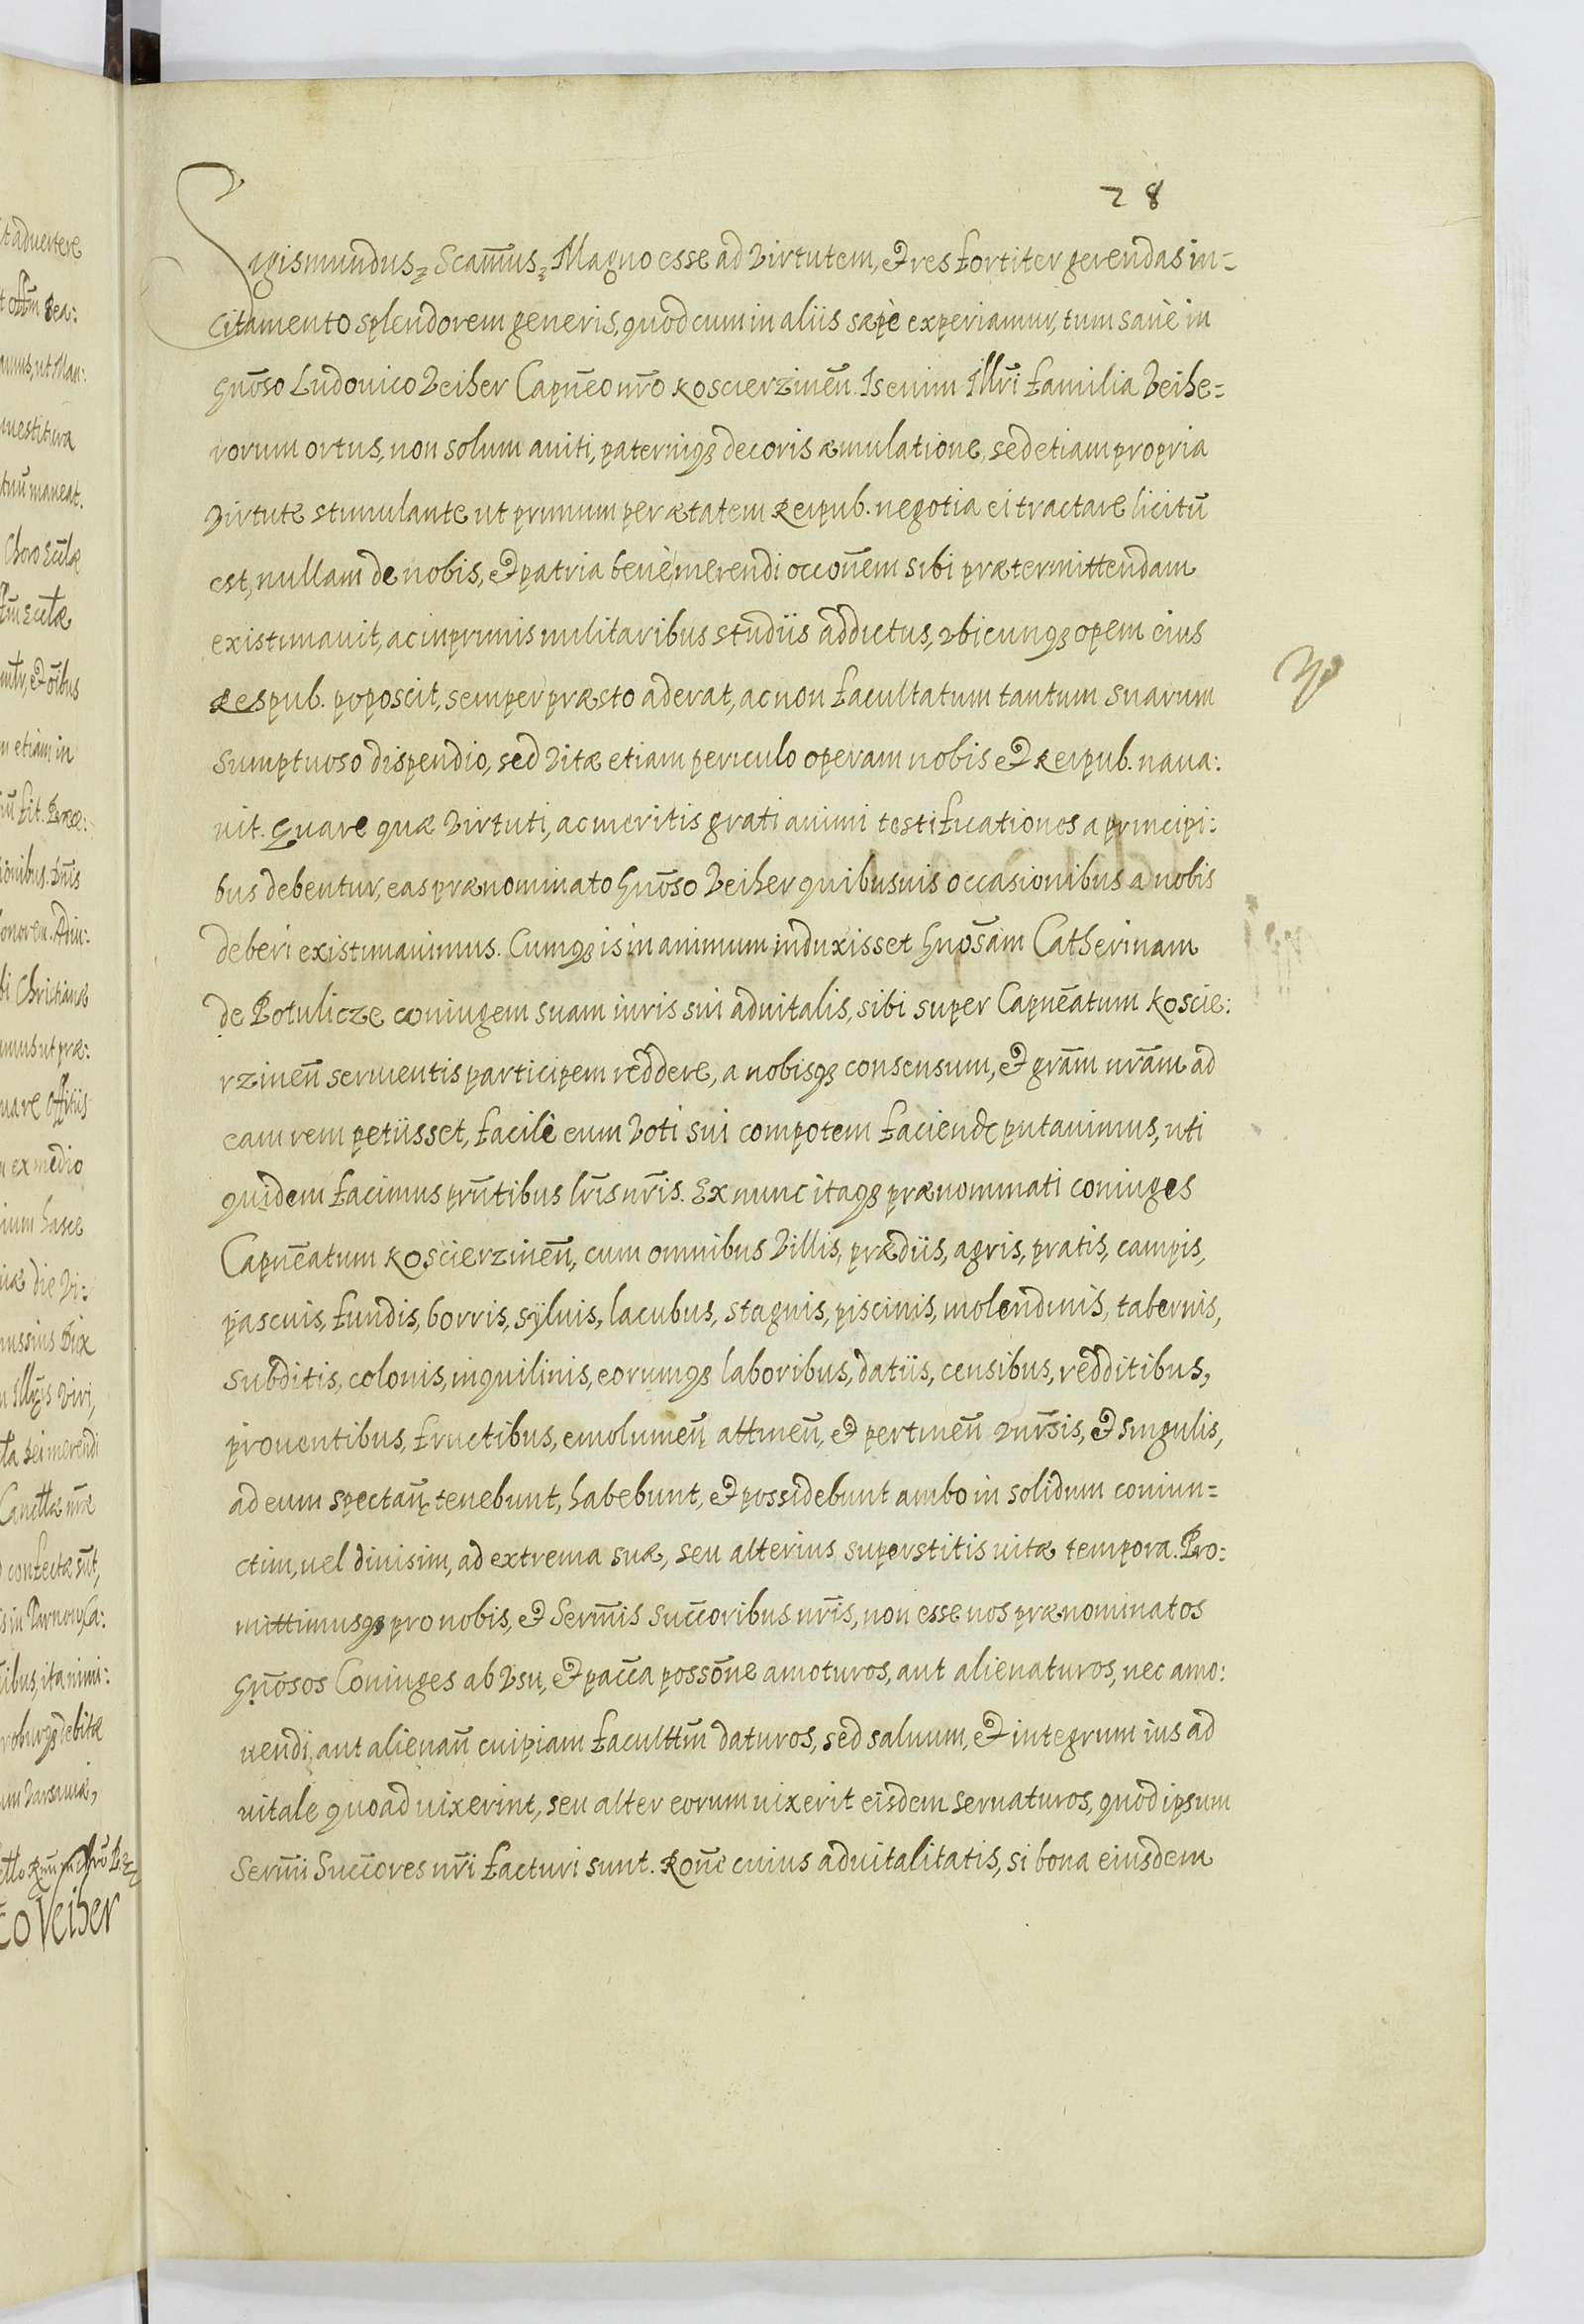 28
Sigismundus etc. Scam̃us etc. Magno esse ad Virtutem, et res fortiter gerendas in=
citamento splendorem generis, quod cum in aliis sæpè experiamur, tum sanè in
Gnõso Ludouico Veiher Capnẽo nrõ Koscierzineñ. Is enim Illrĩ familia Veihe=
rorum ortus, non solum auiti, paterniq3 decoris æmulatione, sed etiam propria
Virtute stimulante ut primum per ætatem Reipub. negotia ei tractare licitũ
est, nullam de nobis, et patria benè merendi occoñem sibi prætermittendam
existimauit, ac inprimis militaribus studiis addictus, vbicunq3 opem eius
Respub. poposcit, semper præsto aderat, ac non facultatum tantum suarum
sumptuoso dispendio, sed Vitæ etiam periculo operam nobis et Reipub. naua:
uit. Quare quæ Virtuti, ac meritis grati animi testificationes a principi:
bus debentur, eas prænominato Gnõso Veiher quibusuis occasionibus a nobis
deberi existimauimus. Cumq3 is in animum induxisset Gnõsam Catherinam
de Potulicze coniugem suam iuris sui aduitalis, sibi super Capneãtum Koscie:
rzineñ seruientis participem reddere, a nobisq3 consensum, et grãm nrãm ad
eam rem petiisset, facilè eum Voti sui compotem faciendũ putauimus, uti
quidem facimus prñtibus lrĩs nrĩs. Ex nunc itaq3 prænominati coniuges
Capneãtum Koscierzineñ, cum omnibus Villis, prædiis, agris, pratis, campis,
pascuis, fundis, borris, syluis, lacubus, stagnis, piscinis, molendinis, tabernis,
subditis, colonis, inquilinis, eorumq3 laboribus, datiis, censibus, redditibus,
prouentibus, fructibus, emolumeñ attineñ, et pertineñ vnĩrsis, et singulis,
ad eum spectañ tenebunt, habebunt, et possidebunt ambo in solidum coniun=
ctim, uel diuisim, ad extrema suæ, seu alterius superstitis uitæ tempora. Pro:
mittimusq3 pro nobis, et Serm̃is Succ̃oribus nrĩs, non esse nos prænominatos
Gnõsos Coniuges ab Vsu, et pacc̃a possõne amoturos, aut alienaturos, nec amo:
uendi, aut alienañ cuipiam faculttm̃ daturos, sed saluum, et integrum ius ad
uitale quoad uixerint, seu alter eorum uixerit eisdem seruaturos, quod ipsum
Serm̃i Succ̃ores nrĩ facturi sunt. Roñe cuius aduitalitatis, si bona eiusdem